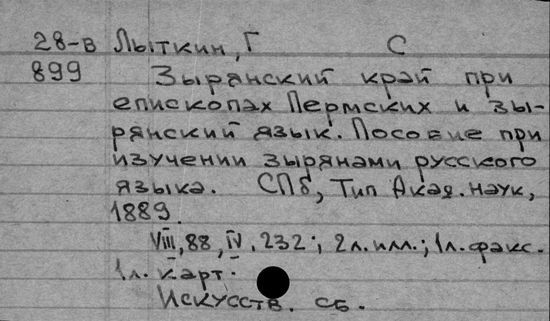 28-в Лыткин, Г С
899 Зырянский край при
епископах Пермских и зы-
рянский язык. Пособие при
изучении зырянами русского
языка. СПб, Тип Акад. наук,
1889.
VIII, 88, IV, 232; 2 л. илл.; 1 л. факс.
1 л. карт.
Искусств. сб.